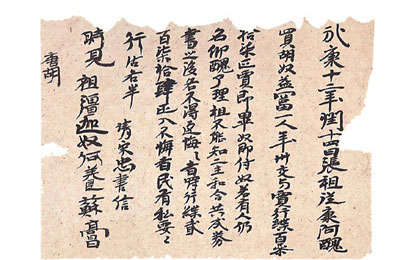 永康十二年潤十四日張祖從康阿醜
買胡奴益富一人年卅交与賈行緤百叁
拾柒疋賈即畢奴即付奴若有人仍
名仰醜了理祖不能知二主和合共成券
書之後各不得返悔悔者罰行緤貳
百柒拾肆疋入不悔者民有私要要
行沽各半
請宋忠書信
時見祖彊迦奴何養蘇高昌
唐胡